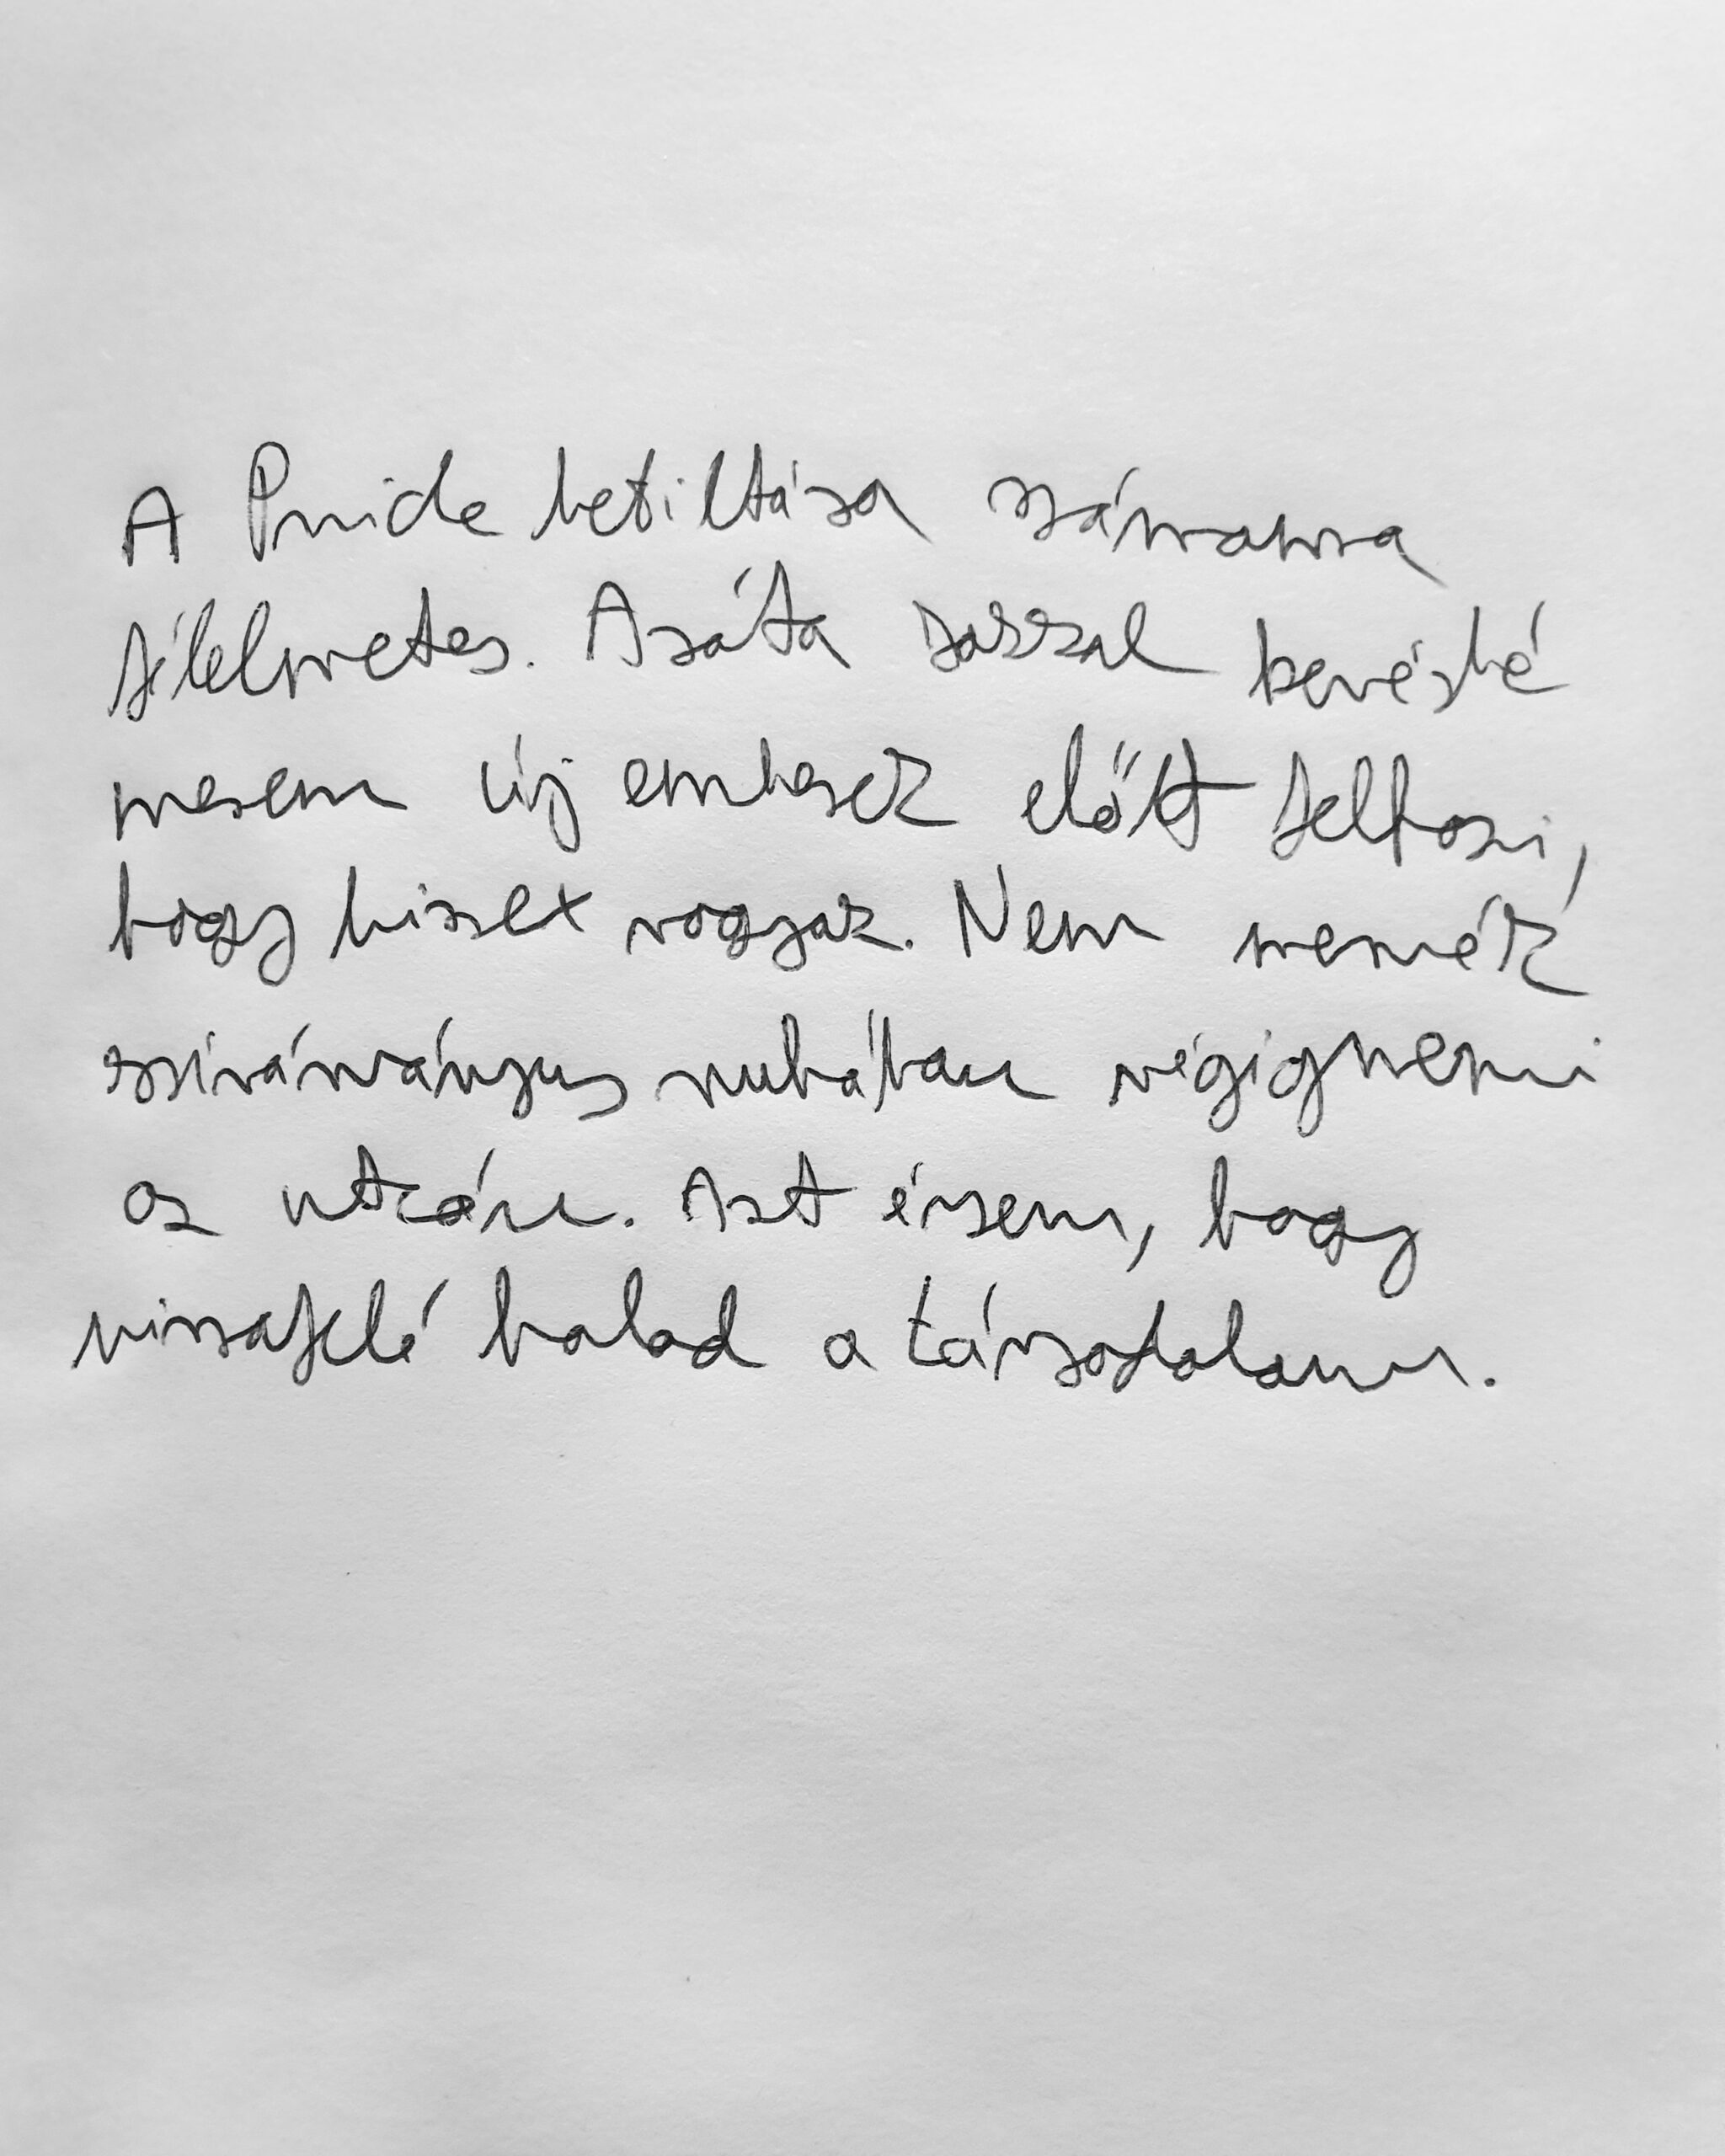 A Pride betiltása számomra
félelmetes. Azóta sokkal kevésbé
merem új emberek előtt felhozni,
hogy biszex vagyok. Nem mernék
szivárványos ruhában végigmenni
az utcán. Azt érzem, hogy
visszafelé halad a társadalom.